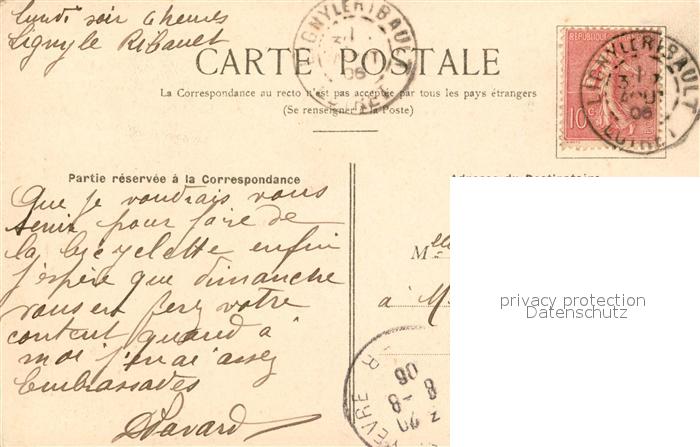 Lundi soir 6 heures
Ligny le Ribault
CARTE POSTALE
La Correspondance au recto n'est pas acceptée par tous les pays étrangers
(Se renseigner à la Poste)
LIGNY LE RIBAULT
06
LOIRET
RÉPUBLIQUE FRANÇAISE
10c
LIGNY LE RIBAULT
06
LOIRET
Partie réservée à la Correspondance
Que je voudrais vous
tenir pour faire de
la bicyclette enfin
j'espère que dimanche
vous en ferez votre
content quand à
moi j'en ai assez
Embrassades
Mlle
à M
8 -8
06
privacy protection
Datenschutz